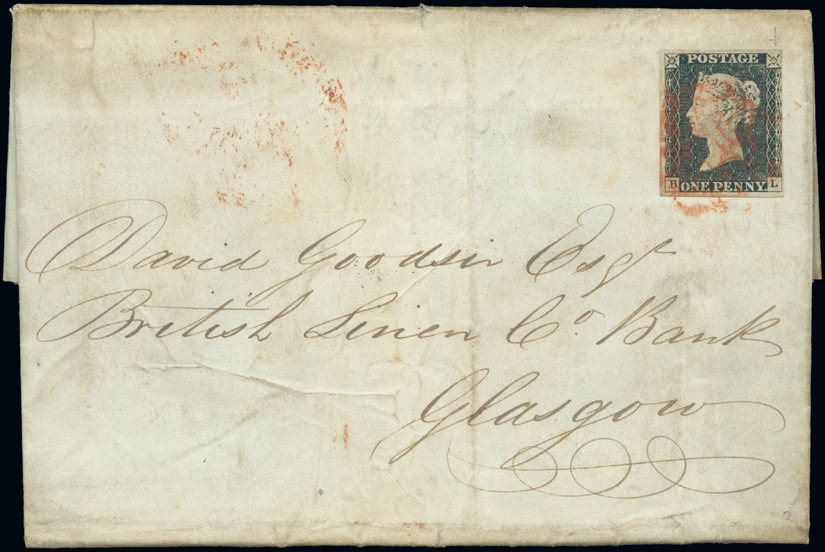 POSTAGE
B ONE PENNY L
David Goodsir Esqr
British Linen Co Bank
Glasgow